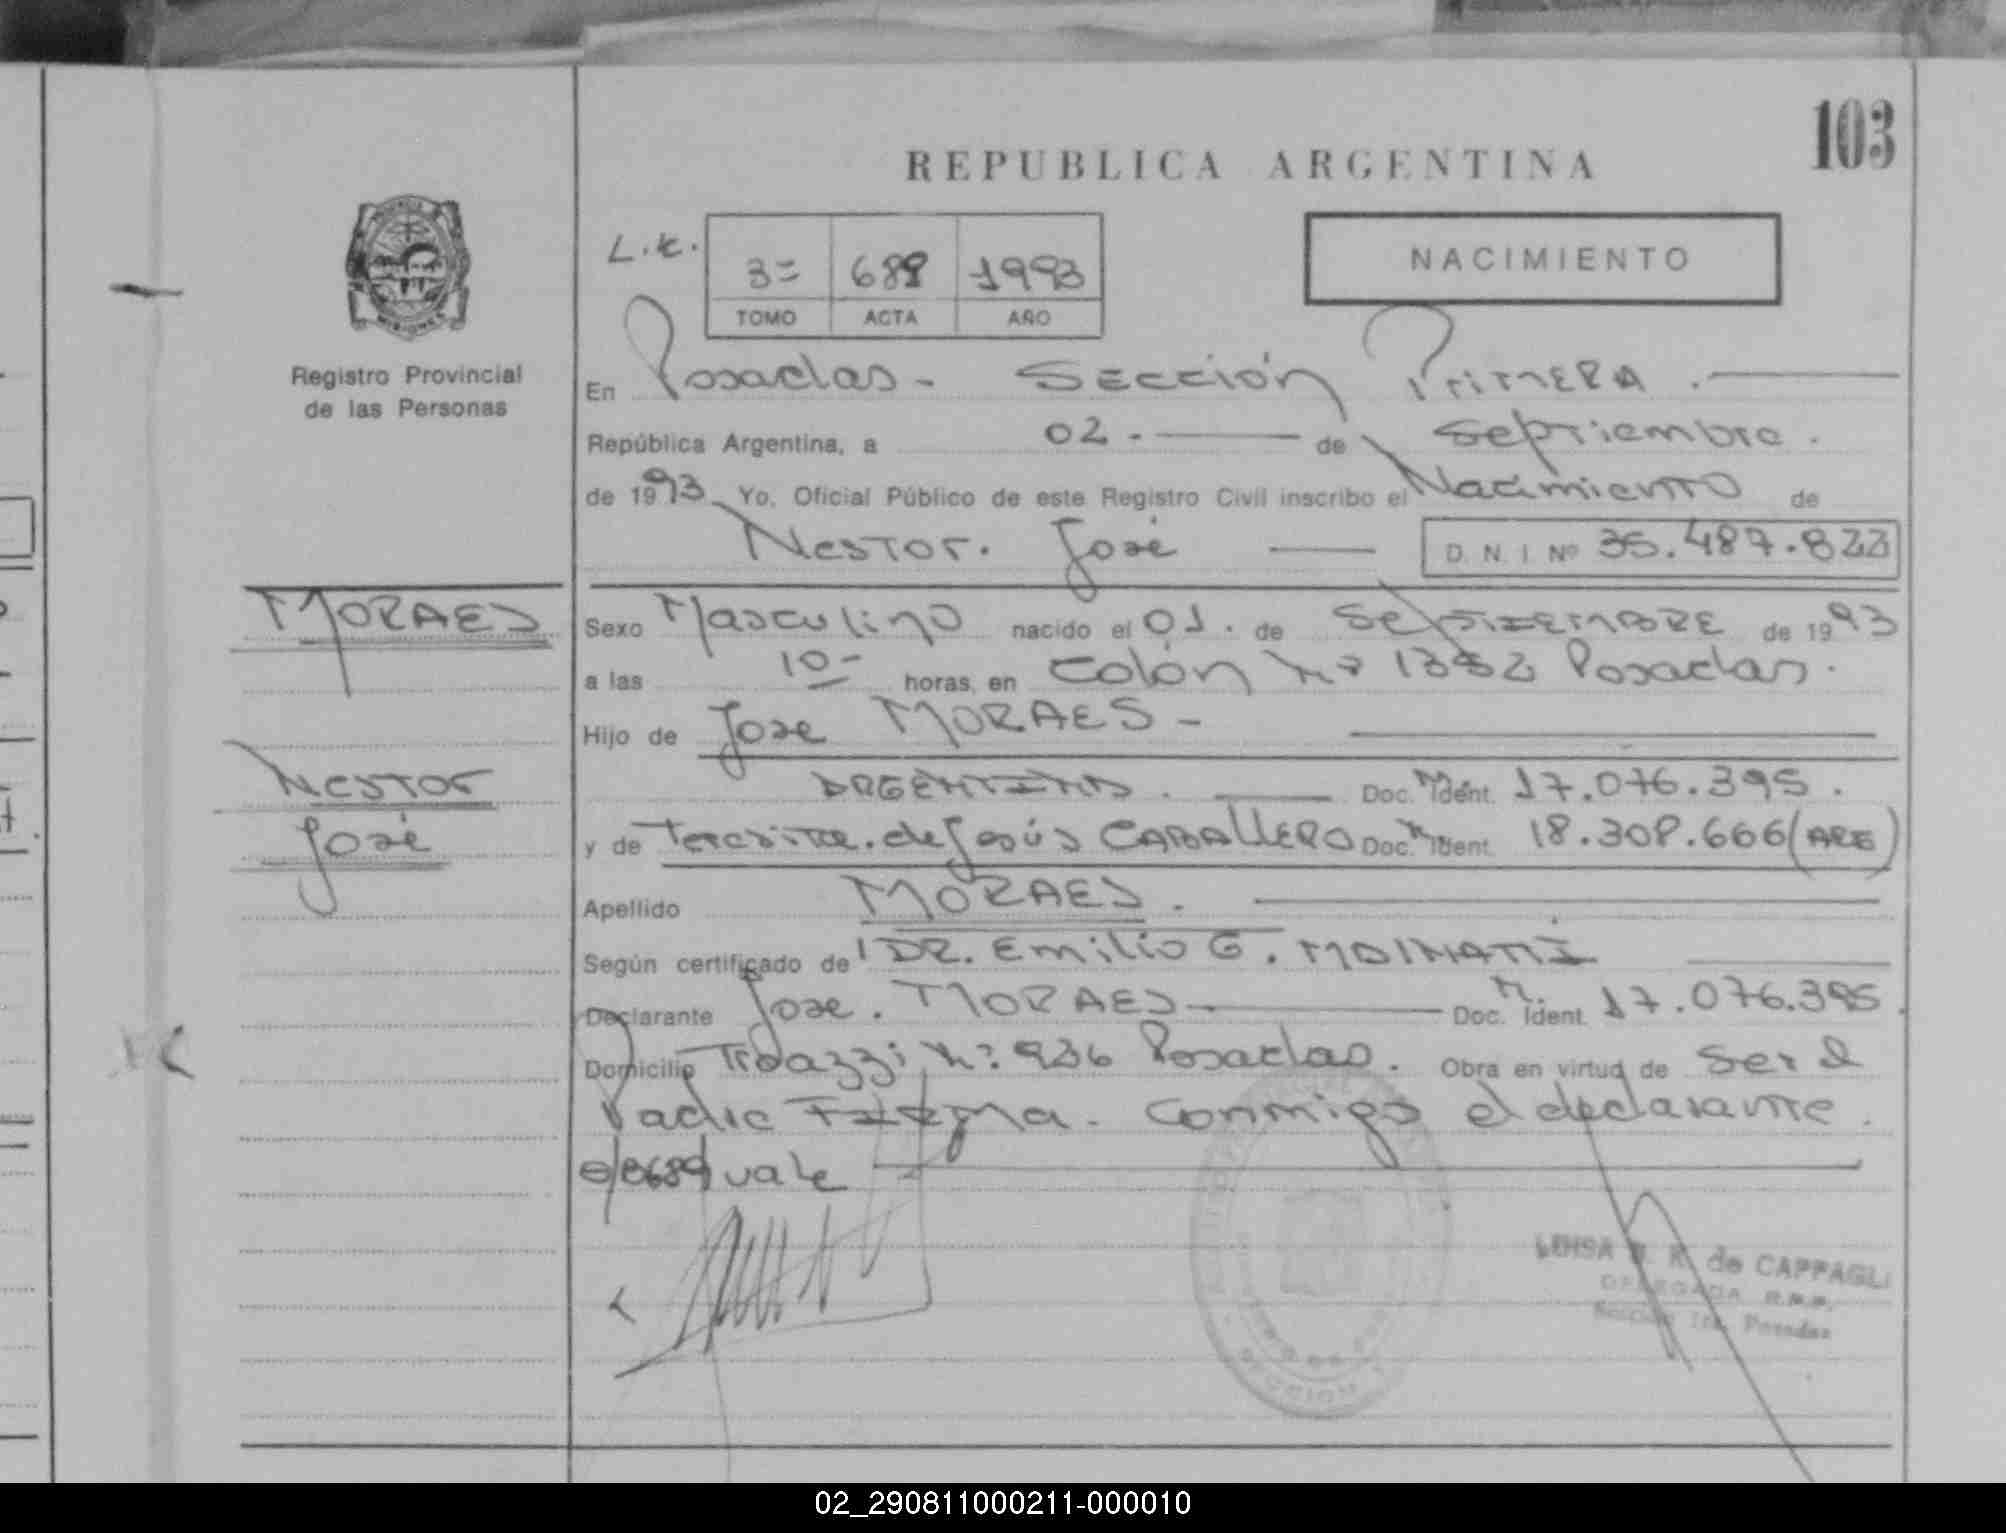 103
REPUBLICA ARGENTINA
MISIONES
Registro Provincial
de las Personas
L.E.
3= 689 1993
TOMO ACTA AÑO
NACIMIENTO
En Posadas - Sección Primera.
República Argentina, a 02. de Septiembre.
de 1993 Yo, Oficial Público de este Registro Civil inscribo el Nacimiento de
Nestor. José D. N. I. Nº 35.487.822
MORAES
Sexo Masculino nacido el 01. de SepTIEMBRE de 1993
a las 10- horas, en Colón Nº 1352 Posadas.
Hijo de Jose MORAES -
Nestor
José
ARGENTINO. Doc. N. Ident. 17.076.395.
y de Teresita de Jesús CABALLERO Doc. N. Ident. 18.308.666 (ARG)
Apellido MORAES.
Según certificado de DR. Emilio G.
Declarante Jose. MORAES Doc. N. Ident. 17.076.395.
Domicilio Nº: 936 Posadas. Obra en virtud de ser el
Padre Firma. Conmigo el declarante.
689 vale
LUISA de CAPPAGLI
DELEGADA R.P.P.
Sección 1ra. Posadas
02_290811000211-000010